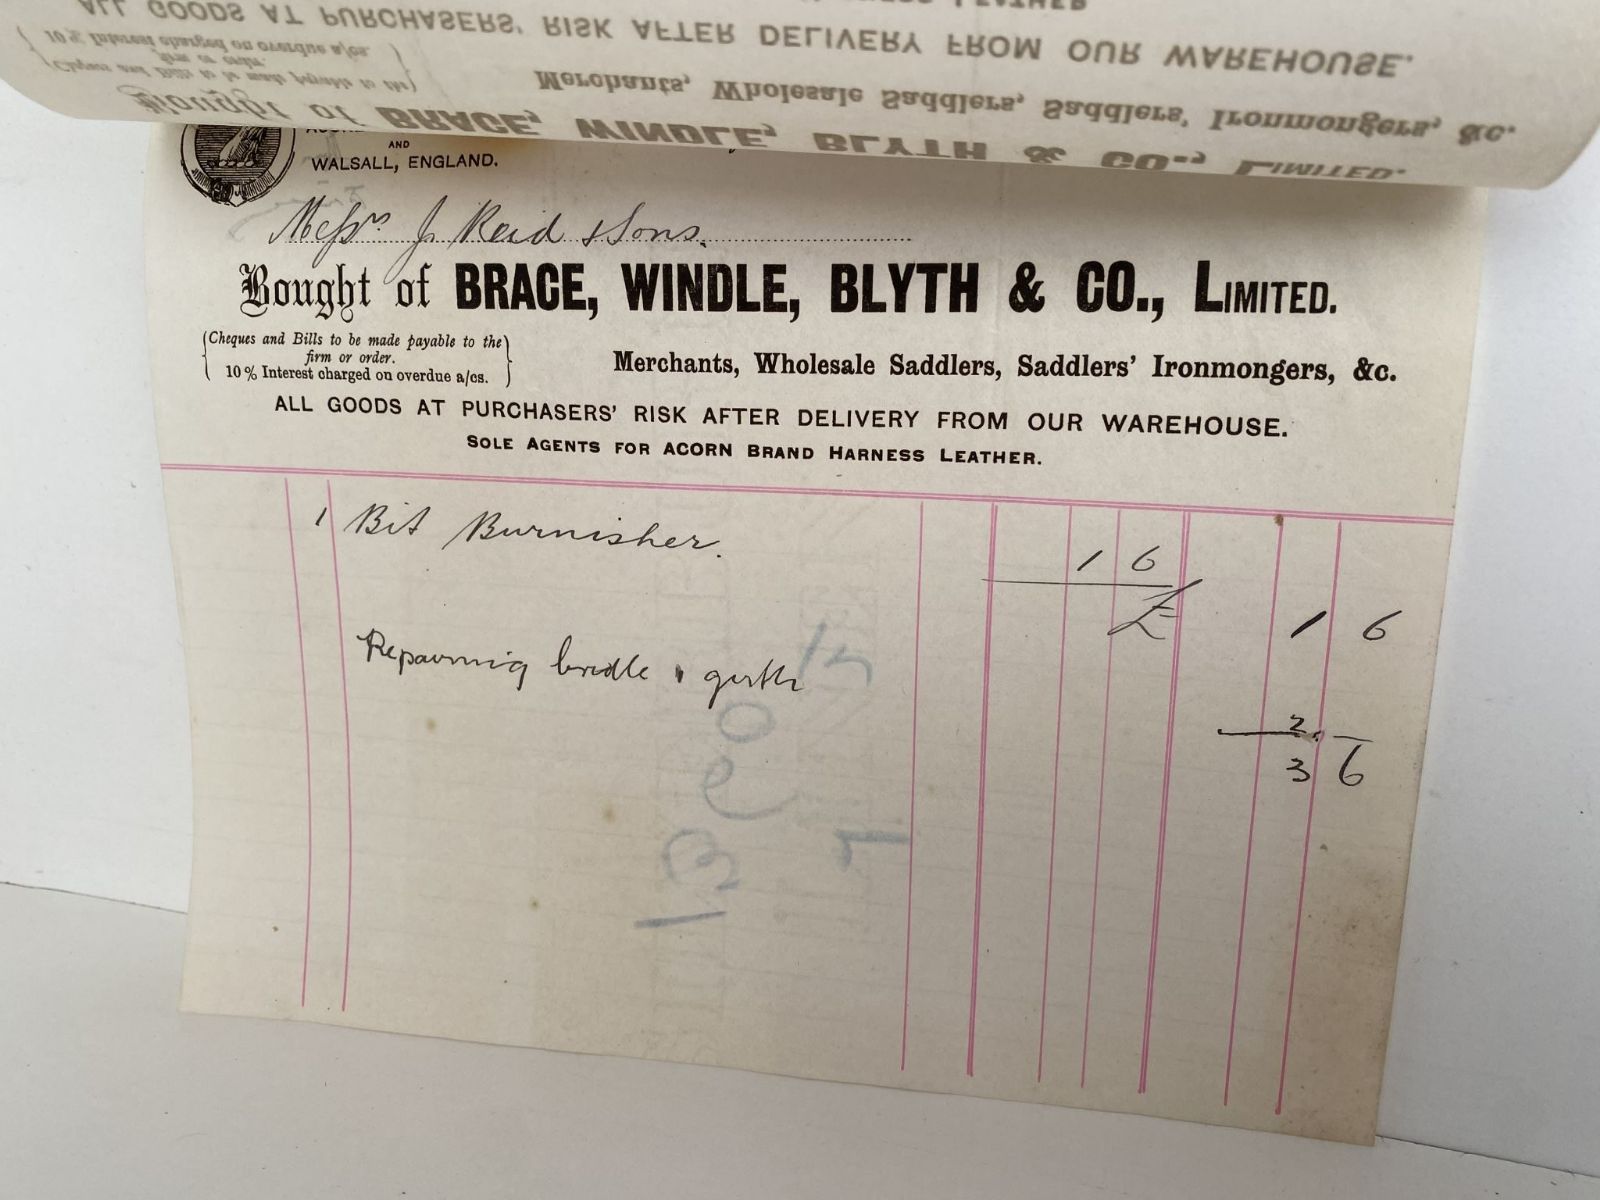 ALL GOODS AT PURCHASERS' RISK AFTER DELIVERY FROM OUR WAREHOUSE.
10% Interest charged on overdue a/cs.
firm or order.
Cheques and Bills to be made payable to the
Merchants, Wholesale Saddlers, Saddlers' Ironmongers, &c.
Bought of BRACE, WINDLE, BLYTH & CO., LIMITED.
AND
WALSALL, ENGLAND.
Messrs J Reid & Sons.
Bought of BRACE, WINDLE, BLYTH & CO., LIMITED.
Cheques and Bills to be made payable to the
firm or order.
10% Interest charged on overdue a/cs.
Merchants, Wholesale Saddlers, Saddlers' Ironmongers, &c.
ALL GOODS AT PURCHASERS' RISK AFTER DELIVERY FROM OUR WAREHOUSE.
SOLE AGENTS FOR ACORN BRAND HARNESS LEATHER.
1 Bit Burnisher. 1 6
£ 1 6
Repairing bridle & girth
2. -
3 6